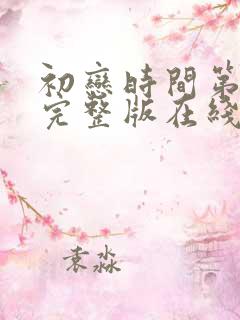 初戀時間第
完整版在綫
袁淼